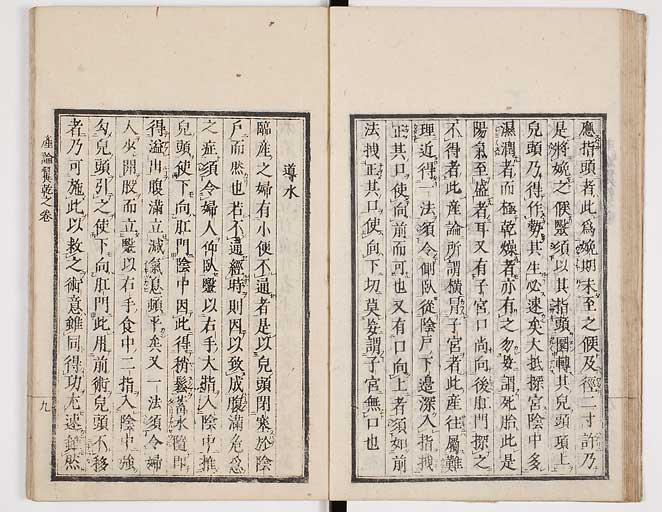 應指頭者此爲娩期未至之候及徑二寸許乃
是將娩之候醫須以其指頭圓轉其兒頭項上
兒頭乃得作勢其生必速矣大抵探宮陰中多
濕潤者而極乾燥者亦有之勿妄謂死胎此是
陽氣至盛者耳又有子宮口尚向後肛門探之
不得者此産論所謂橫骨子宮者此産往屬難
理近得一法須令側臥從陰戸下邊深入指拽
正其口使向前而可也又有口向上者須如前
法拽正其口使向下切莫妄謂子宮無口也
導水
臨産之婦有小便不通者是以兒頭閉塞於陰
戸而然也若不通經時則因以致成腹滿危急
之症須令婦人仰臥醫以右手大指入陰中推
兒頭使下向肛門陰中因此得稍鬆蓄水隨卽
得溢出腹滿立減氣息頓平矣又一法須令婦
人坐開股而立醫以右手食中二指入陰中強
勾兒頭引之使下向肛門此用前術兒頭不移
者乃可施此以救之術意雖同得功尤速雖然
産論翼乾之卷
九